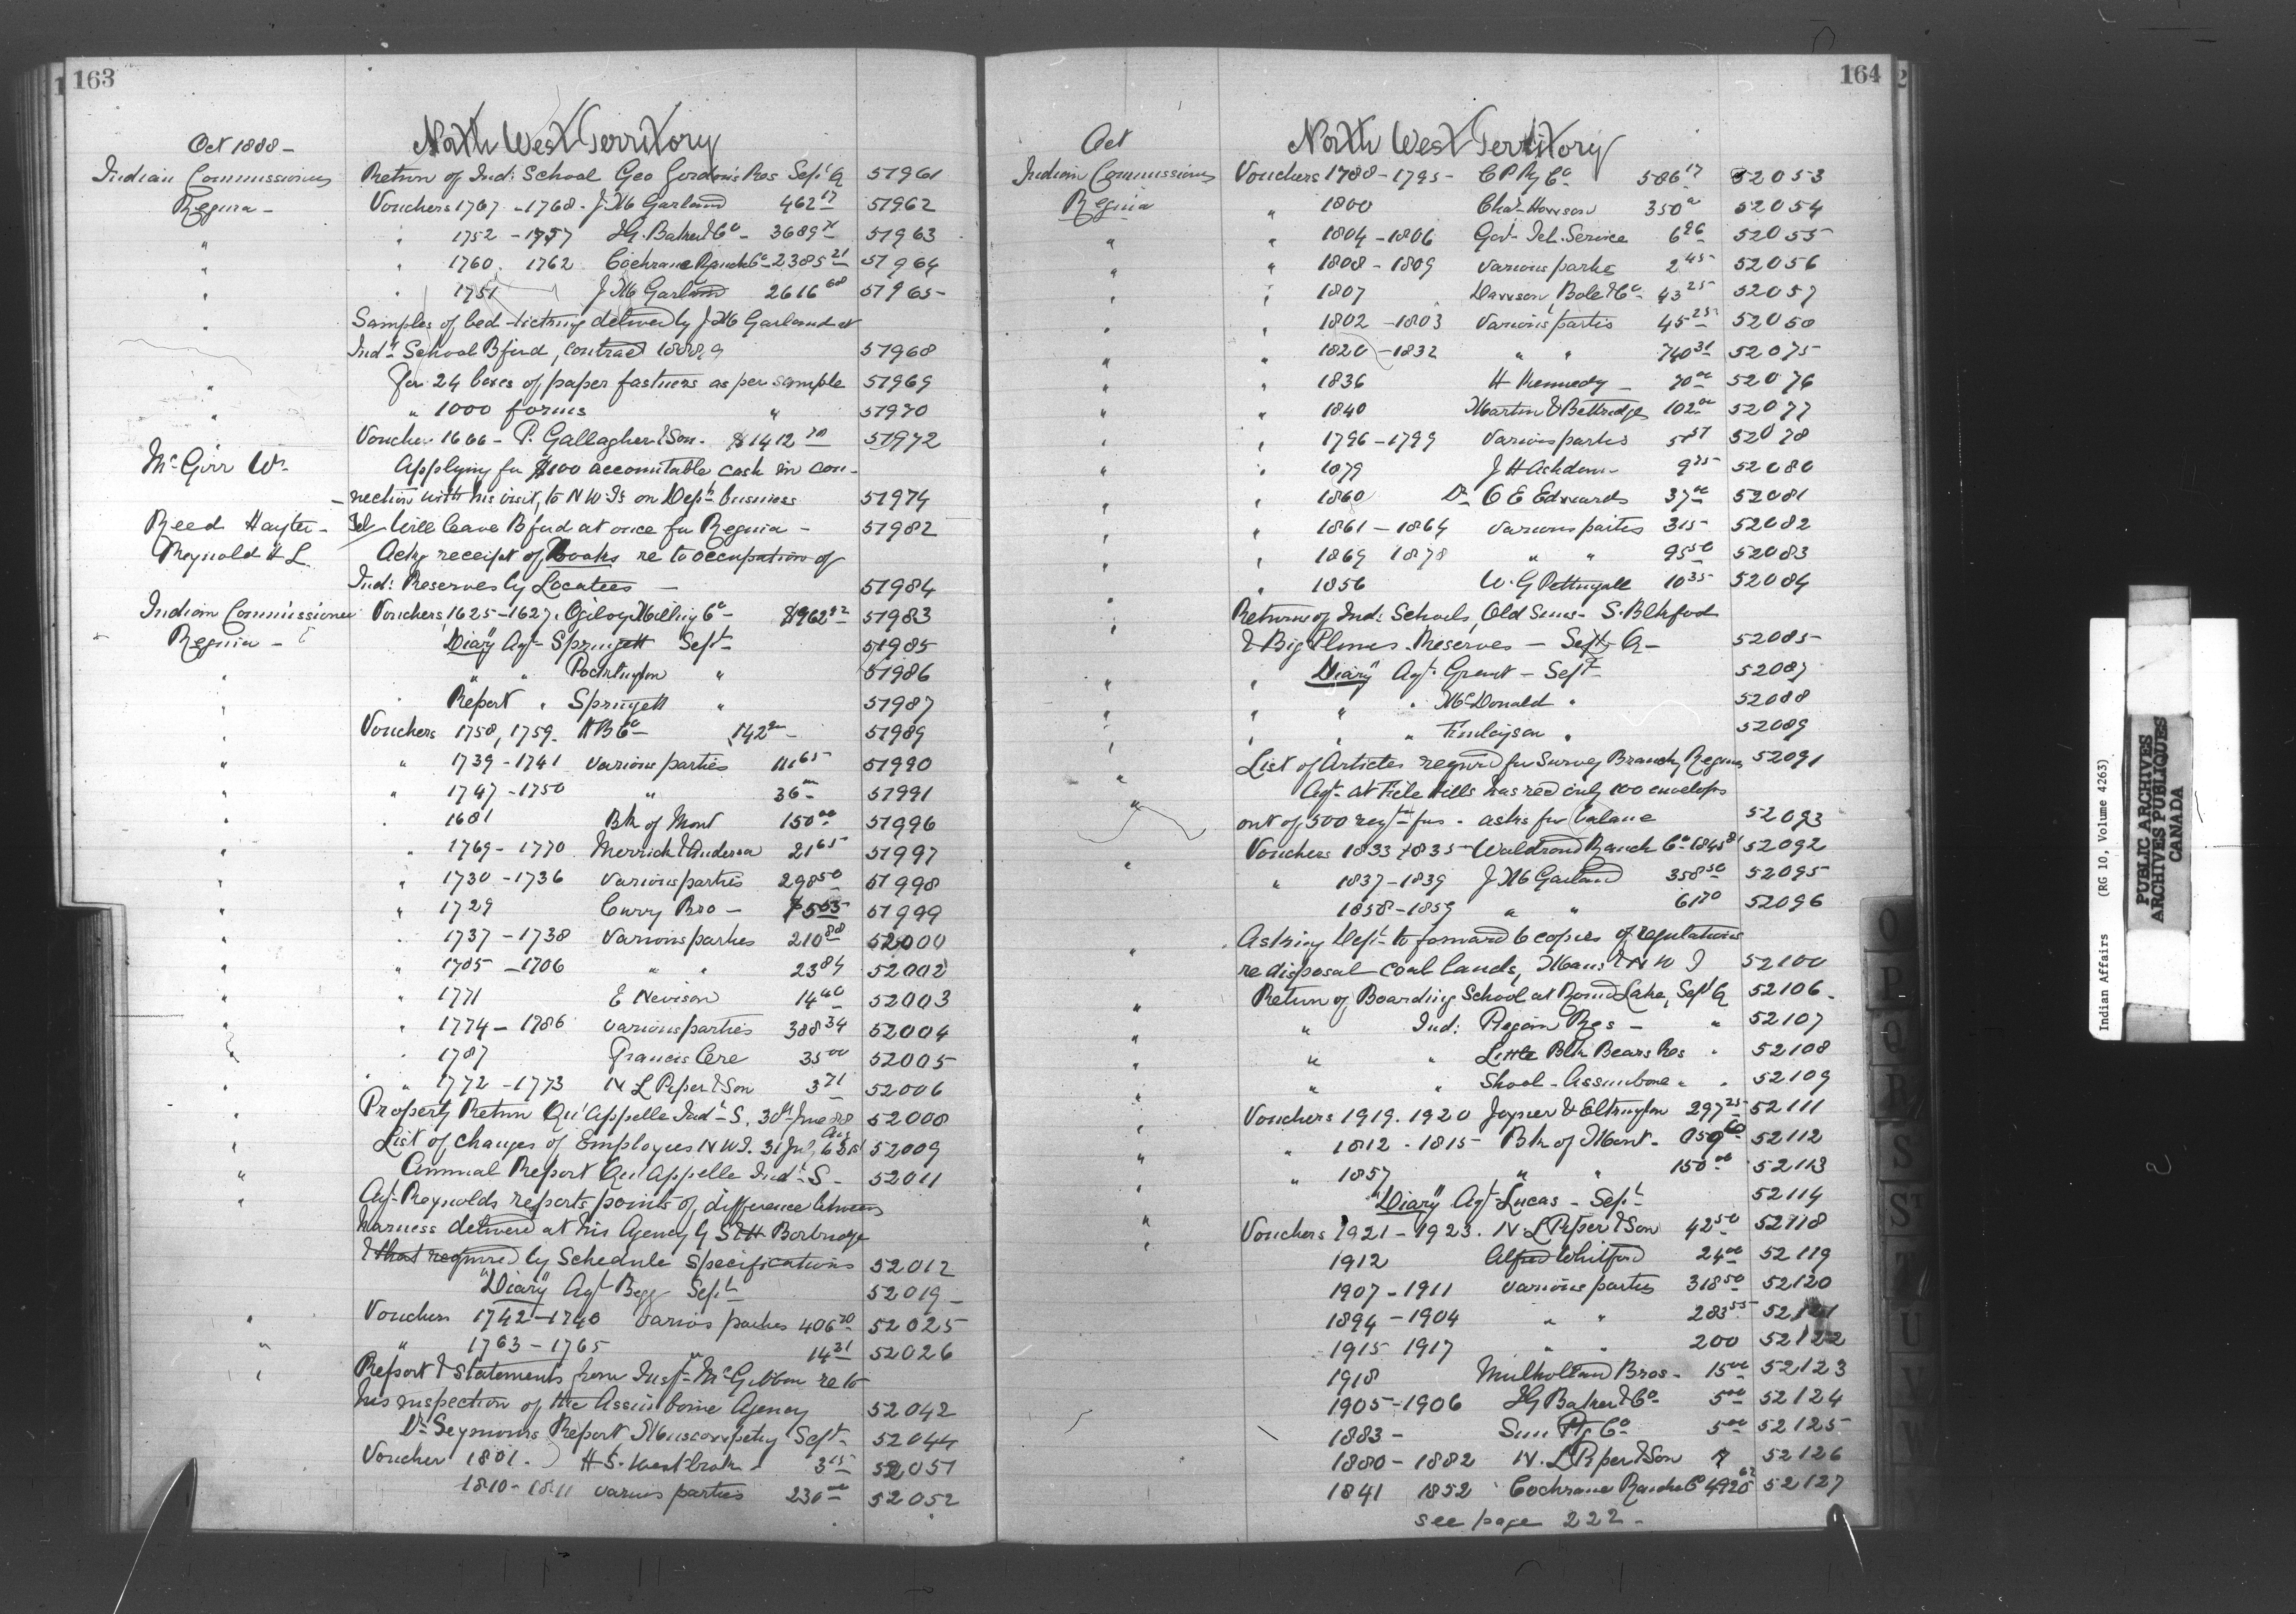 163
Oct 1888 - North West Territory
Indian Commissioner Return of Ind: School Geo Gordon's Res Sept Q 51961
Regina - Vouchers 1767 - 1768 - J M Garland 462 17 51962
" " 1752 - 1757 I G. Baker & Co - 3689 51963
" " 1760. 1762 Cochrane Ranch Co 2385 21 51964
" " 1751 J M Garland 2616 68 51965
" Samples of bed ticking delived by J M Garland at
Indl School Bford, contract 1888.9 51968
" For 24 boxes of paper fastners as per sample 51969
" " 1000 forms " 51970
Voucher 1666 - P. Gallagher & Son. $1412 51972
McGirr Wm Applying for $100 accountable cash in con-
nection with his visit, to N W Ts on Dept business 51974
Reed Hayter - Tel Will leave Bford at once for Regina - 51982
Reynold H L Ackg receipt of Books re to occupation of
Ind: Reserves by Locatees - 51984
Indian Commissioner Vouchers 1625 - 1627. Ogilvy Milling Co - $962 51983
Regina - "Diary" Agt Springett Sept 51985
" " " Pocklington " 51986
" Report " Springett " 51987
" Vouchers 1758, 1759. H B Co - 142 51989
" " 1739 - 1741 various parties 111 65 51990
" " 1747 - 1750 " 36 51991
" 1681 Bk of Mont 150 00 51996
" " 1769 - 1770 Merrick & Anderson 21 65 51997
" " 1730 - 1736 various parties 298 50 51998
" " 1729 Curry Bro - 51999
" " 1737 - 1738 various parties 210 88 52000
" " 1705 - 1706 " " 23 84 52002
" " 1771 E Nevison 14 40 52003
" " 1774 - 1786 various parties 388 34 52004
" 1787 Francis Cere 35 00 52005
" " 1772 - 1773 N L Piper & Son 3 71 52006
" Property Return Qu'Appelle Indl S. 30th June 88 52008
" List of changes of Employees N W T. 31 July & 31st Aug 52009
" Annual Report Qu'Appelle Indl S - 52011
" Agt Reynolds reports points of difference between
harness delivered at his Agency by S & H Borbridge
& that required by Schedule specifications 52012
"Diary" Agt Begg Sept 52019
" Vouchers 1742 - 1748 various parties 406 70 52025
" " 1763 - 1765 " 14 21 52026
" Report & Statements from Inspr McGibbon re to
his inspection of the Assiniboine Agency 52042
Dr Seymours Report Muscowpetung Sept 52044
Voucher 1801. H. S. Westbrook 3 15 52051
1810 - 1811 various parties 230 00 52052
164
Oct North West Territory
Indian Commissioner Vouchers 1788 - 1795 - C P Ry Co 586 17 52053
Regina " 1800 Chas Harrison 350 52054
" " 1804 - 1806 Govt Tel. Service 6 26 52055
" " 1808 - 1809 various parties 2 45 52056
" " 1807 Dawson, Bole & Co 43 25 52057
" " 1802 - 1803 various parties 45 25 52058
" " 1820 - 1832 " " 740 31 52075
" " 1836 H Kennedy - 70 00 52076
" " 1840 Martin & Bettridge 102 00 52077
" " 1796 - 1799 various parties 5 57 52078
" " 1879 J H Ashdown 9 25 52080
" " 1860 Dr O E Edwards 37 00 52081
" " 1861 - 1864 various parties 315 52082
" " 1869 1878 " " 95 50 52083
" " 1856 W. G Pettingale 10 35 52084
" Returns of Ind: Schools, Old Suns - S. Blkford
" & Big Plumes Reserves - Sept Q - 52085
" " "Diary" Agt Grant - Sept 52087
" " " " McDonald " 52088
" " " " Finlayson " 52089
" List of Articles required for Survey Branch, Regina 52091
" Agt at File Hills has recd only 100 envelops
out of 500 reqtn for - asks for balance 52093
Vouchers 1833 1835 - Waldrond Ranch Co 1845 81 52092
" " 1837 - 1839 J M Garland 358 50 52095
1858 - 1859 " " 61 70 52096
" Asking Dept to forward 6 copies of regulations
re disposal - coal lands, Man: & N W T 52100
" Return of Boarding School at Round Lake, Sept Q 52106
" " Ind: Piegan Res - " 52107
" " " Little Blk Bears Res " 52108
" " " School - Assiniboine " " 52109
" Vouchers 1919. 1920 Joyner & Elkington 297 25 52111
" " 1812 - 1815 - Bk of Mont - 52112
" " 1857 " " 150 00 52113
"Diary" Agt Lucas - Sept 52114
" Vouchers 1921 - 1923. N L Piper & Son 42 50 52118
" 1912 Alfred Whitford 24 00 52119
1907 - 1911 various parties 318 50 52120
1894 - 1904 " " 283 55 52121
1915 1917 " " 200 52122
1918 Mulholland Bros - 15 00 52123
1905 - 1906 I G Baker & Co 5 00 52124
1883 - Sun Ptg Co 5 00 52125
1880 - 1882 N. L Piper & Son 7 52126
1841 1852 Cochrane Ranche Co 4926 62 52127
see page 222 -
O
P
Q
R
S
ST
T
U
V
W
Indian Affairs (RG 10, Volume 4263)
PUBLIC ARCHIVES
ARCHIVES PUBLIQUES
CANADA